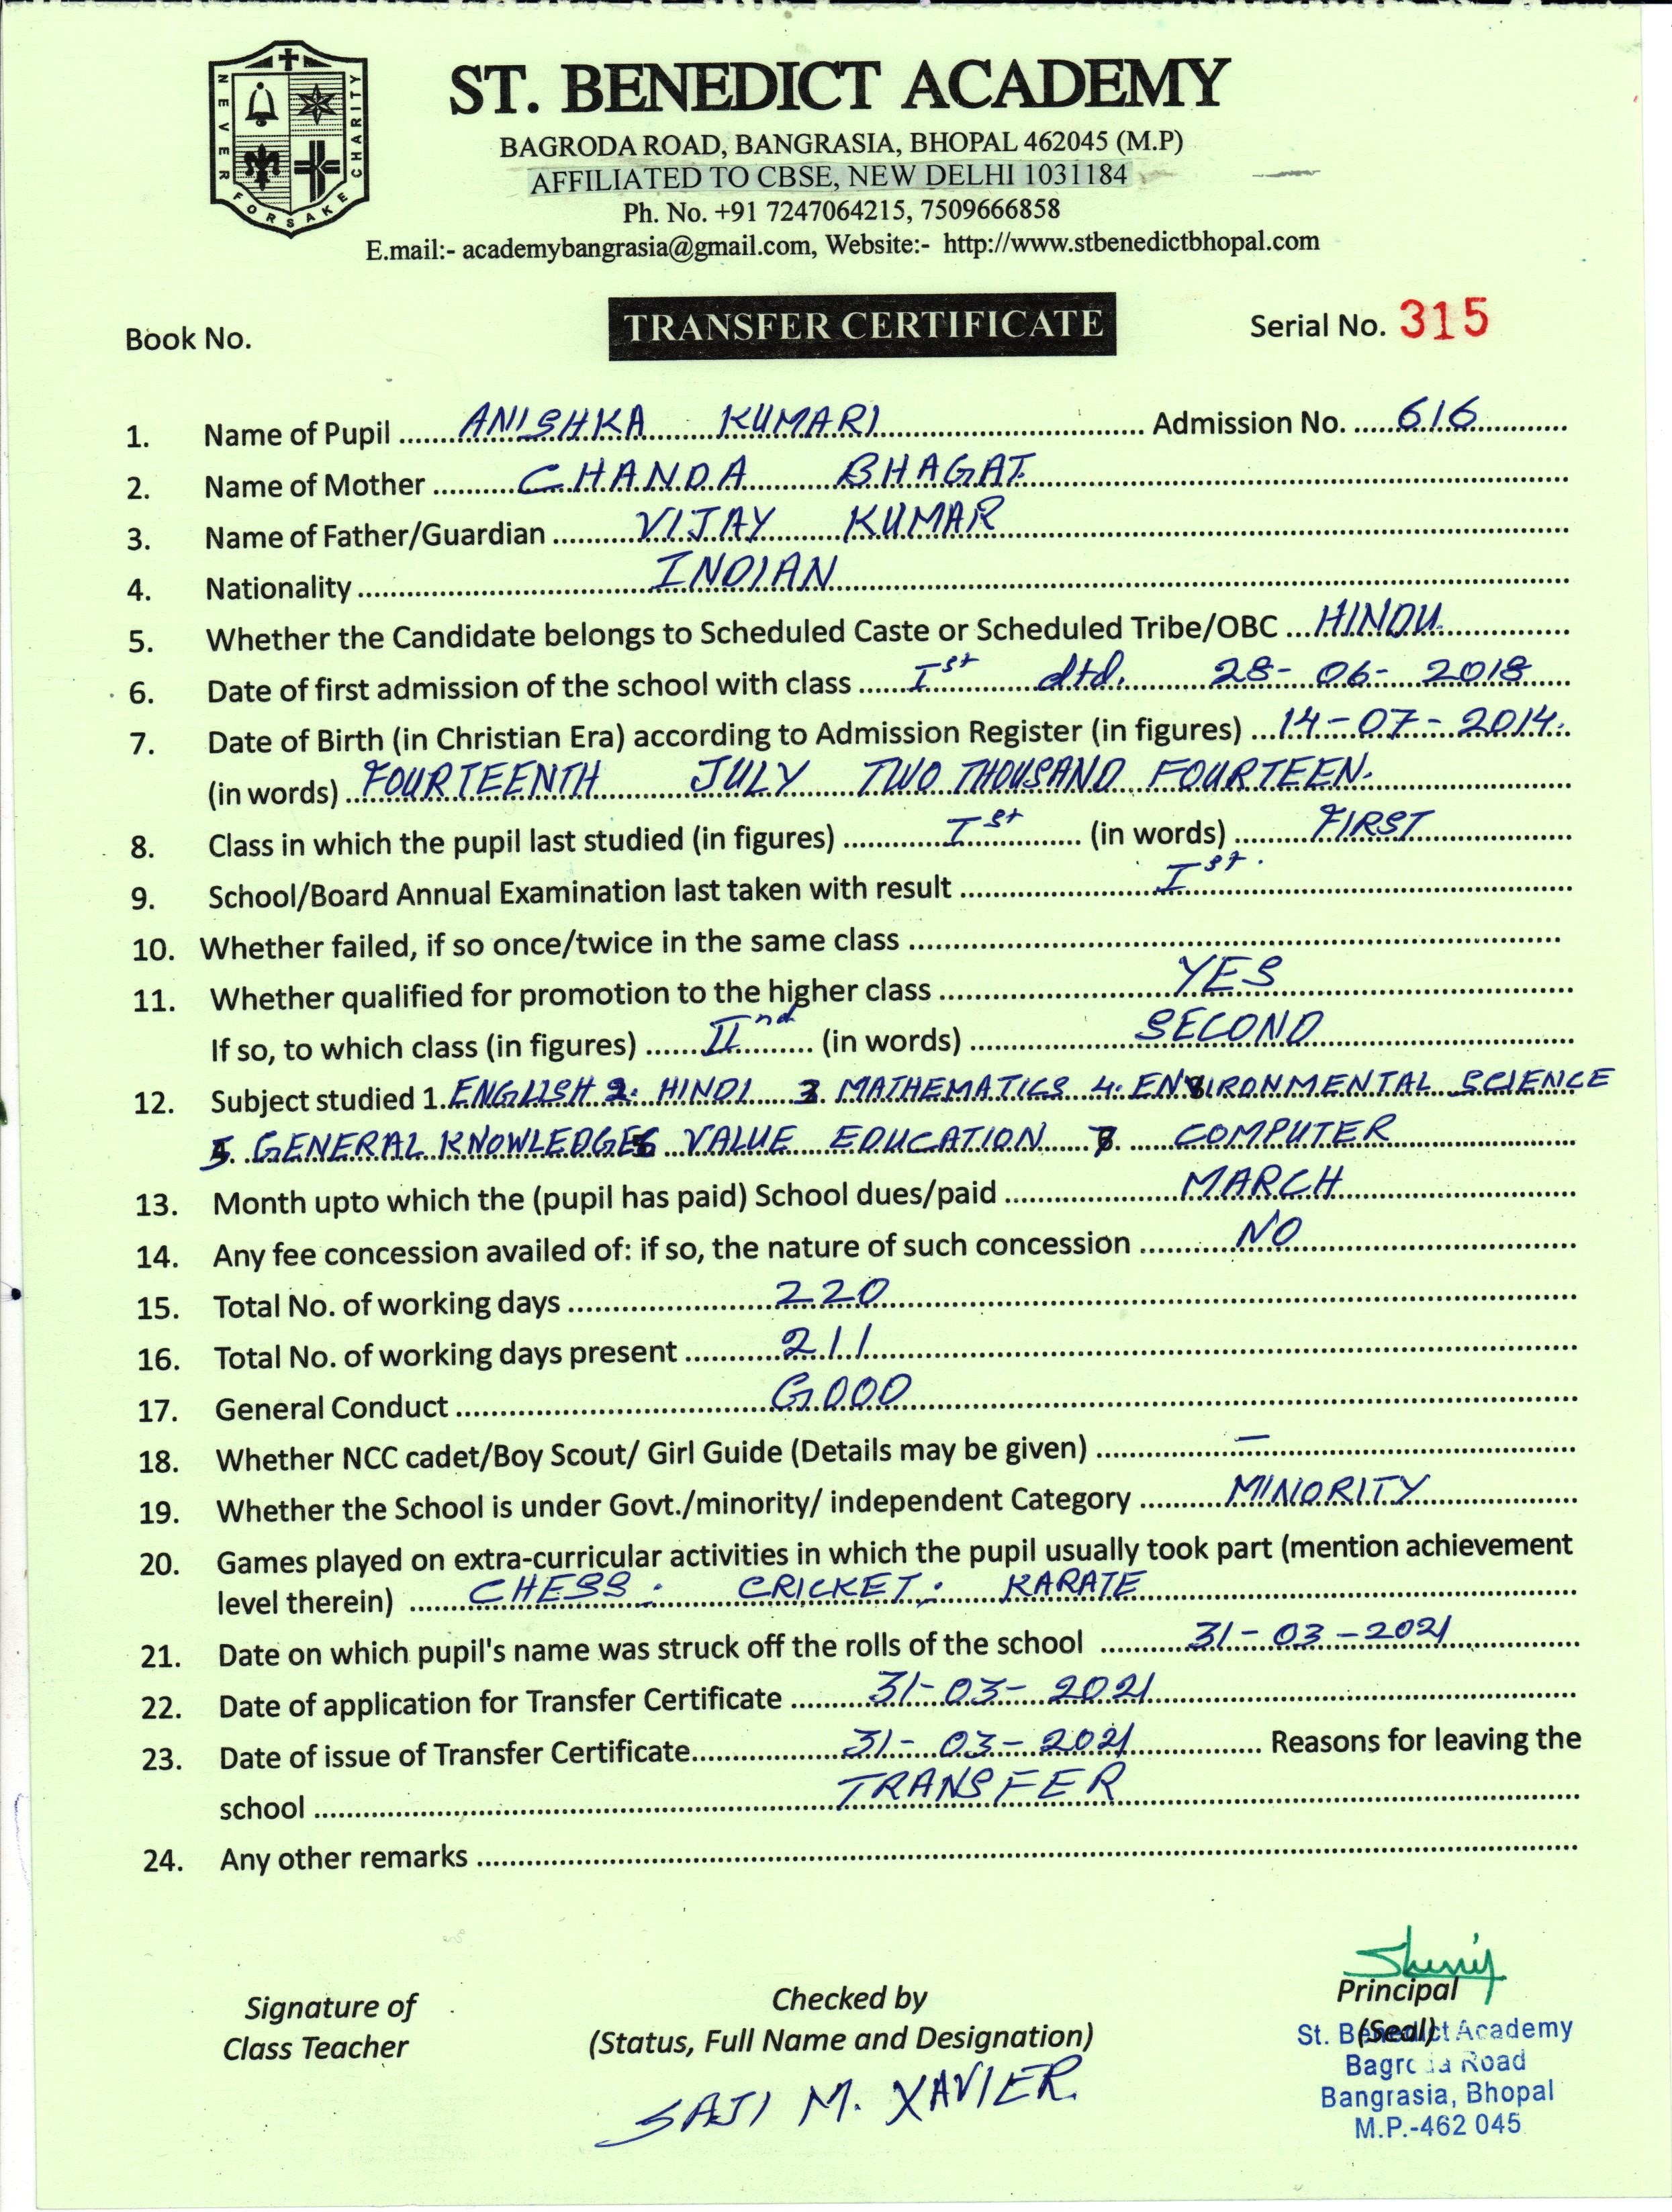 NEVER FORSAKE CHARITY
ST. BENEDICT ACADEMY
BAGRODA ROAD, BANGRASIA, BHOPAL 462045 (M.P)
AFFILIATED TO CBSE, NEW DELHI 1031184
Ph. No. +91 7247064215, 7509666858
E.mail:- academybangrasia@gmail.com, Website:- http://www.stbenedictbhopal.com
Book No. TRANSFER CERTIFICATE Serial No. 315
1. Name of Pupil ANISHKA KUMARI Admission No. 616
2. Name of Mother CHANDA BHAGAT
3. Name of Father/Guardian VIJAY KUMAR
4. Nationality INDIAN
5. Whether the Candidate belongs to Scheduled Caste or Scheduled Tribe/OBC HINDU
6. Date of first admission of the school with class Ist dtd. 28-06-2018
7. Date of Birth (in Christian Era) according to Admission Register (in figures) 14-07-2014.
(in words) FOURTEENTH JULY TWO THOUSAND FOURTEEN.
8. Class in which the pupil last studied (in figures) Ist (in words) FIRST
9. School/Board Annual Examination last taken with result Ist.
10. Whether failed, if so once/twice in the same class
11. Whether qualified for promotion to the higher class YES
If so, to which class (in figures) IInd (in words) SECOND
12. Subject studied 1. ENGLISH 2. HINDI 3 MATHEMATICS 4. ENVIRONMENTAL SCIENCE
5. GENERAL KNOWLEDGE 6 VALUE EDUCATION 7. COMPUTER
13. Month upto which the (pupil has paid) School dues/paid MARCH
14. Any fee concession availed of: if so, the nature of such concession NO
15. Total No. of working days 220
16. Total No. of working days present 211
17. General Conduct GOOD
18. Whether NCC cadet/Boy Scout/ Girl Guide (Details may be given) —
19. Whether the School is under Govt./minority/ independent Category MINORITY
20. Games played on extra-curricular activities in which the pupil usually took part (mention achievement
level therein) CHESS. CRICKET. KARATE
21. Date on which pupil's name was struck off the rolls of the school 31-03-2021
22. Date of application for Transfer Certificate 31-03-2021
23. Date of issue of Transfer Certificate 31-03-2021 Reasons for leaving the
school TRANSFER
24. Any other remarks
Signature of
Class Teacher
Checked by
(Status, Full Name and Designation)
SAJI M. XAVIER.
Principal
(Seal)
St. Benedict Academy
Bagroda Road
Bangrasia, Bhopal
M.P.-462 045